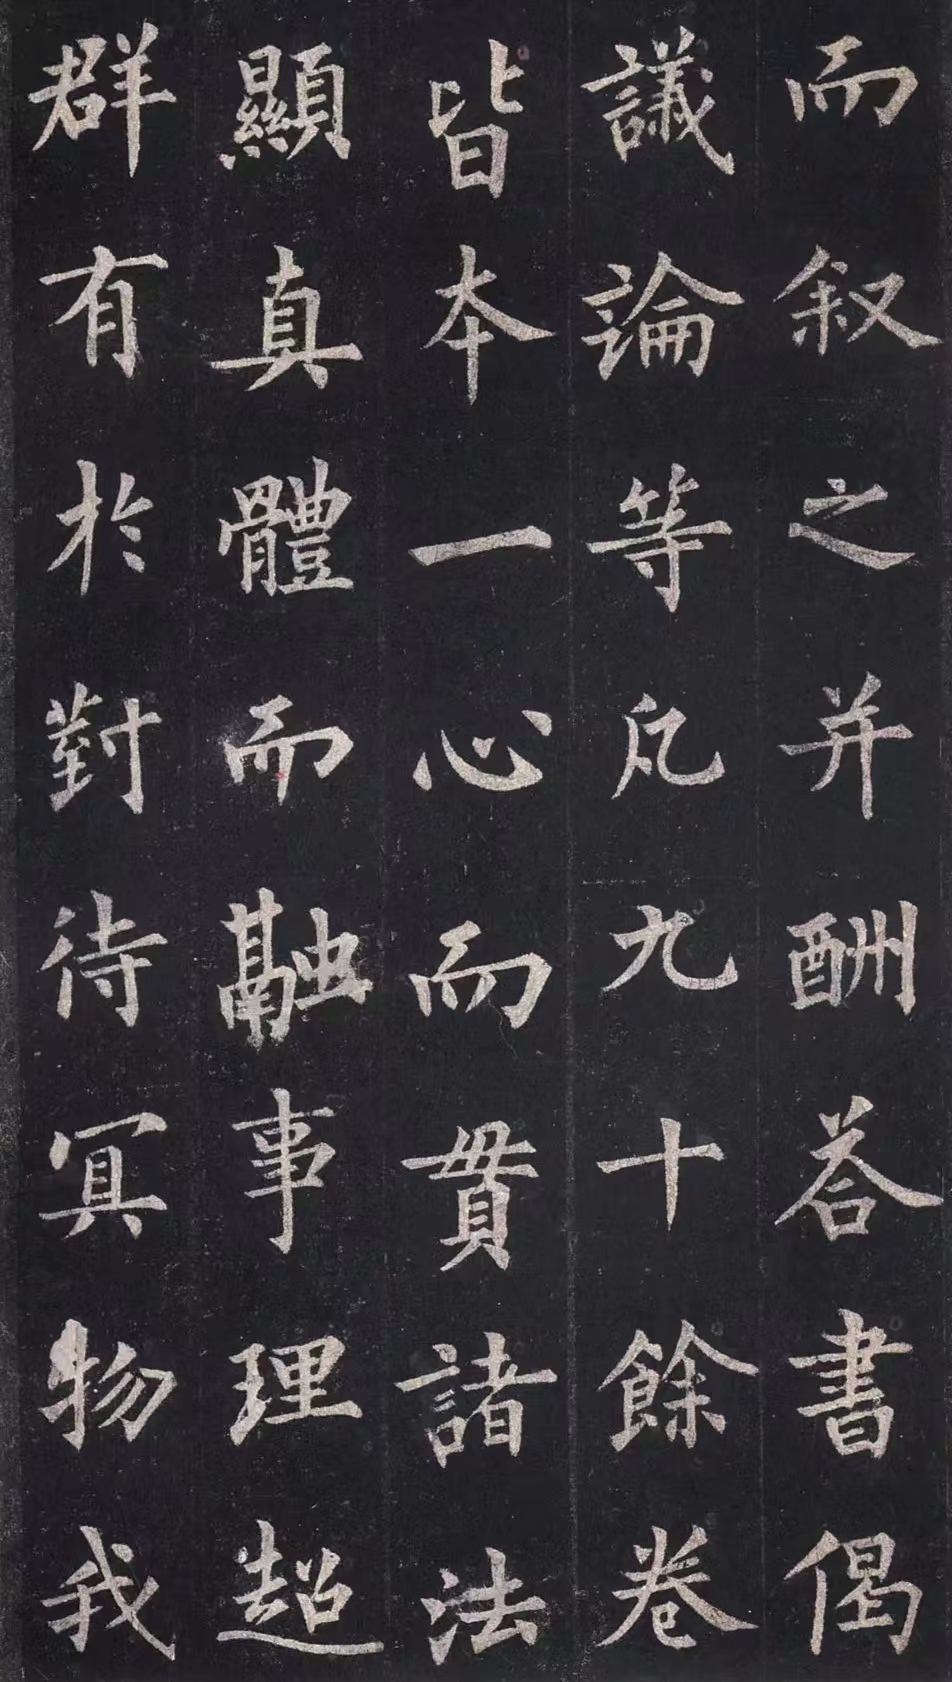 而叙之并酬荅書偈
議論等凡九十餘卷
皆本一心而貫諸法
顯真體而融事理超
群有於對待冥物我